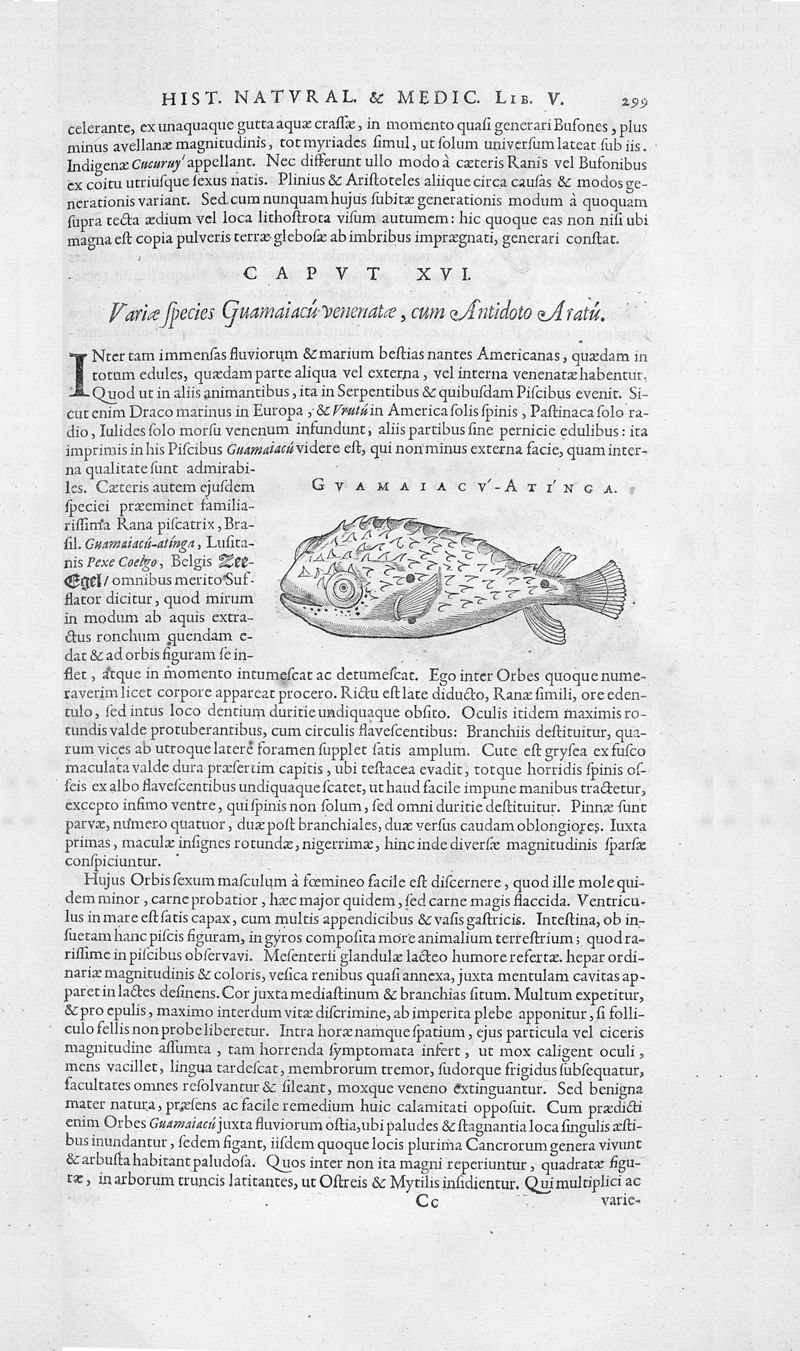 HIST. NATVRAL. & MEDIC. LIB. V. 299
celerante, ex unaquaque gutta aquæ craſſæ, in momento quaſi generari Bufones, plus
minus avellanæ magnitudinis, tot myriades ſimul, ut ſolum univerſum lateat ſub iis.
Indigenæ Cucuruy' appellant. Nec differunt ullo modo à cæteris Ranis vel Bufonibus
ex coitu utriuſque ſexus natis. Plinius & Ariſtoteles aliique circa cauſas & modos ge-
nerationis variant. Sed cum nunquam hujus ſubitæ generationis modum à quoquam
ſupra tecta ædium vel loca lithoſtrota viſum autumem: hic quoque eas non niſi ubi
magna eſt copia pulveris terræ gleboſæ ab imbribus imprægnati, generari conſtat.
CAPVT XVI.
Variæ ſpecies Guamaiacú venenatæ, cum Antidoto Aratú.
INter tam immenſas fluviorum & marium beſtias nantes Americanas, quædam in
totum edules, quædam parte aliqua vel externa, vel interna venenatæ habentur.
Quod ut in aliis animantibus, ita in Serpentibus & quibuſdam Piſcibus evenit. Si-
cut enim Draco marinus in Europa, & Vrutú in America ſolis ſpinis, Paſtinaca ſolo ra-
dio, Iulides ſolo morſu venenum infundunt, aliis partibus ſine pernicie edulibus: ita
imprimis in his Piſcibus Guamaiacú videre eſt, qui non minus externa facie, quam inter-
na qualitate ſunt admirabi-
les. Cæteris autem ejuſdem
ſpeciei præeminet familia-
riſſima Rana piſcatrix, Bra-
ſil. Guamaiacú-atinga, Luſita-
nis Pexe Coelgo, Belgis Zee-
Egel/ omnibus merito Suf-
flator dicitur, quod mirum
in modum ab aquis extra-
ctus ronchum quendam e-
dat & ad orbis figuram ſe in-
GVAMAIACV'-ATI'NGA.
flet, atque in momento intumeſcat ac detumeſcat. Ego inter Orbes quoque nume-
raverim licet corpore appareat procero. Rictu eſt late diducto, Ranæ ſimili, ore eden-
tulo, ſed intus loco dentium duritie undiquaque obſito. Oculis itidem maximis ro-
tundis valde protuberantibus, cum circulis flaveſcentibus: Branchiis deſtituitur, qua-
rum vices ab utroque latere foramen ſupplet ſatis amplum. Cute eſt gryſea ex fuſco
maculata valde dura præſertim capitis, ubi teſtacea evadit, totque horridis ſpinis oſ-
ſeis ex albo flaveſcentibus undiquaque ſcatet, ut haud facile impune manibus tractetur,
excepto infimo ventre, qui ſpinis non ſolum, ſed omni duritie deſtituitur. Pinnæ ſunt
parvæ, numero quatuor, duæ poſt branchiales, duæ verſus caudam oblongiores. Iuxta
primas, maculæ inſignes rotundæ, nigerrimæ, hinc inde diverſæ magnitudinis ſparſæ
conſpiciuntur.
Hujus Orbis ſexum maſculum à fœmineo facile eſt diſcernere, quod ille mole qui-
dem minor, carne probatior, hæc major quidem, ſed carne magis flaccida. Ventricu-
lus in mare eſt ſatis capax, cum multis appendicibus & vaſis gaſtricis. Inteſtina, ob in-
ſuetam hanc piſcis figuram, in gyros compoſita more animalium terreſtrium; quod ra-
riſſime in piſcibus obſervavi. Meſenterii glandulæ lacteo humore refertæ. hepar ordi-
nariæ magnitudinis & coloris, veſica renibus quaſi annexa, juxta mentulam cavitas ap-
paret in lactes deſinens. Cor juxta mediaſtinum & branchias ſitum. Multum expetitur,
& pro epulis, maximo interdum vitæ diſcrimine, ab imperita plebe apponitur, ſi folli-
culo fellis non probe liberetur. Intra horæ namque ſpatium, ejus particula vel ciceris
magnitudine aſſumta, tam horrenda ſymptomata infert, ut mox caligent oculi,
mens vacillet, lingua tardeſcat, membrorum tremor, ſudorque frigidus ſubſequatur,
facultates omnes reſolvantur & ſileant, moxque veneno extinguantur. Sed benigna
mater natura, præſens ac facile remedium huic calamitati oppoſuit. Cum prædicti
enim Orbes Guamaiacú juxta fluviorum oſtia, ubi paludes & ſtagnantia loca ſingulis æſti-
bus inundantur, ſedem figant, iiſdem quoque locis plurima Cancrorum genera vivunt
& arbuſta habitant paludoſa. Quos inter non ita magni reperiuntur, quadratæ figu-
ræ, in arborum truncis latitantes, ut Oſtreis & Mytilis inſidientur. Qui multiplici ac
Cc varie-